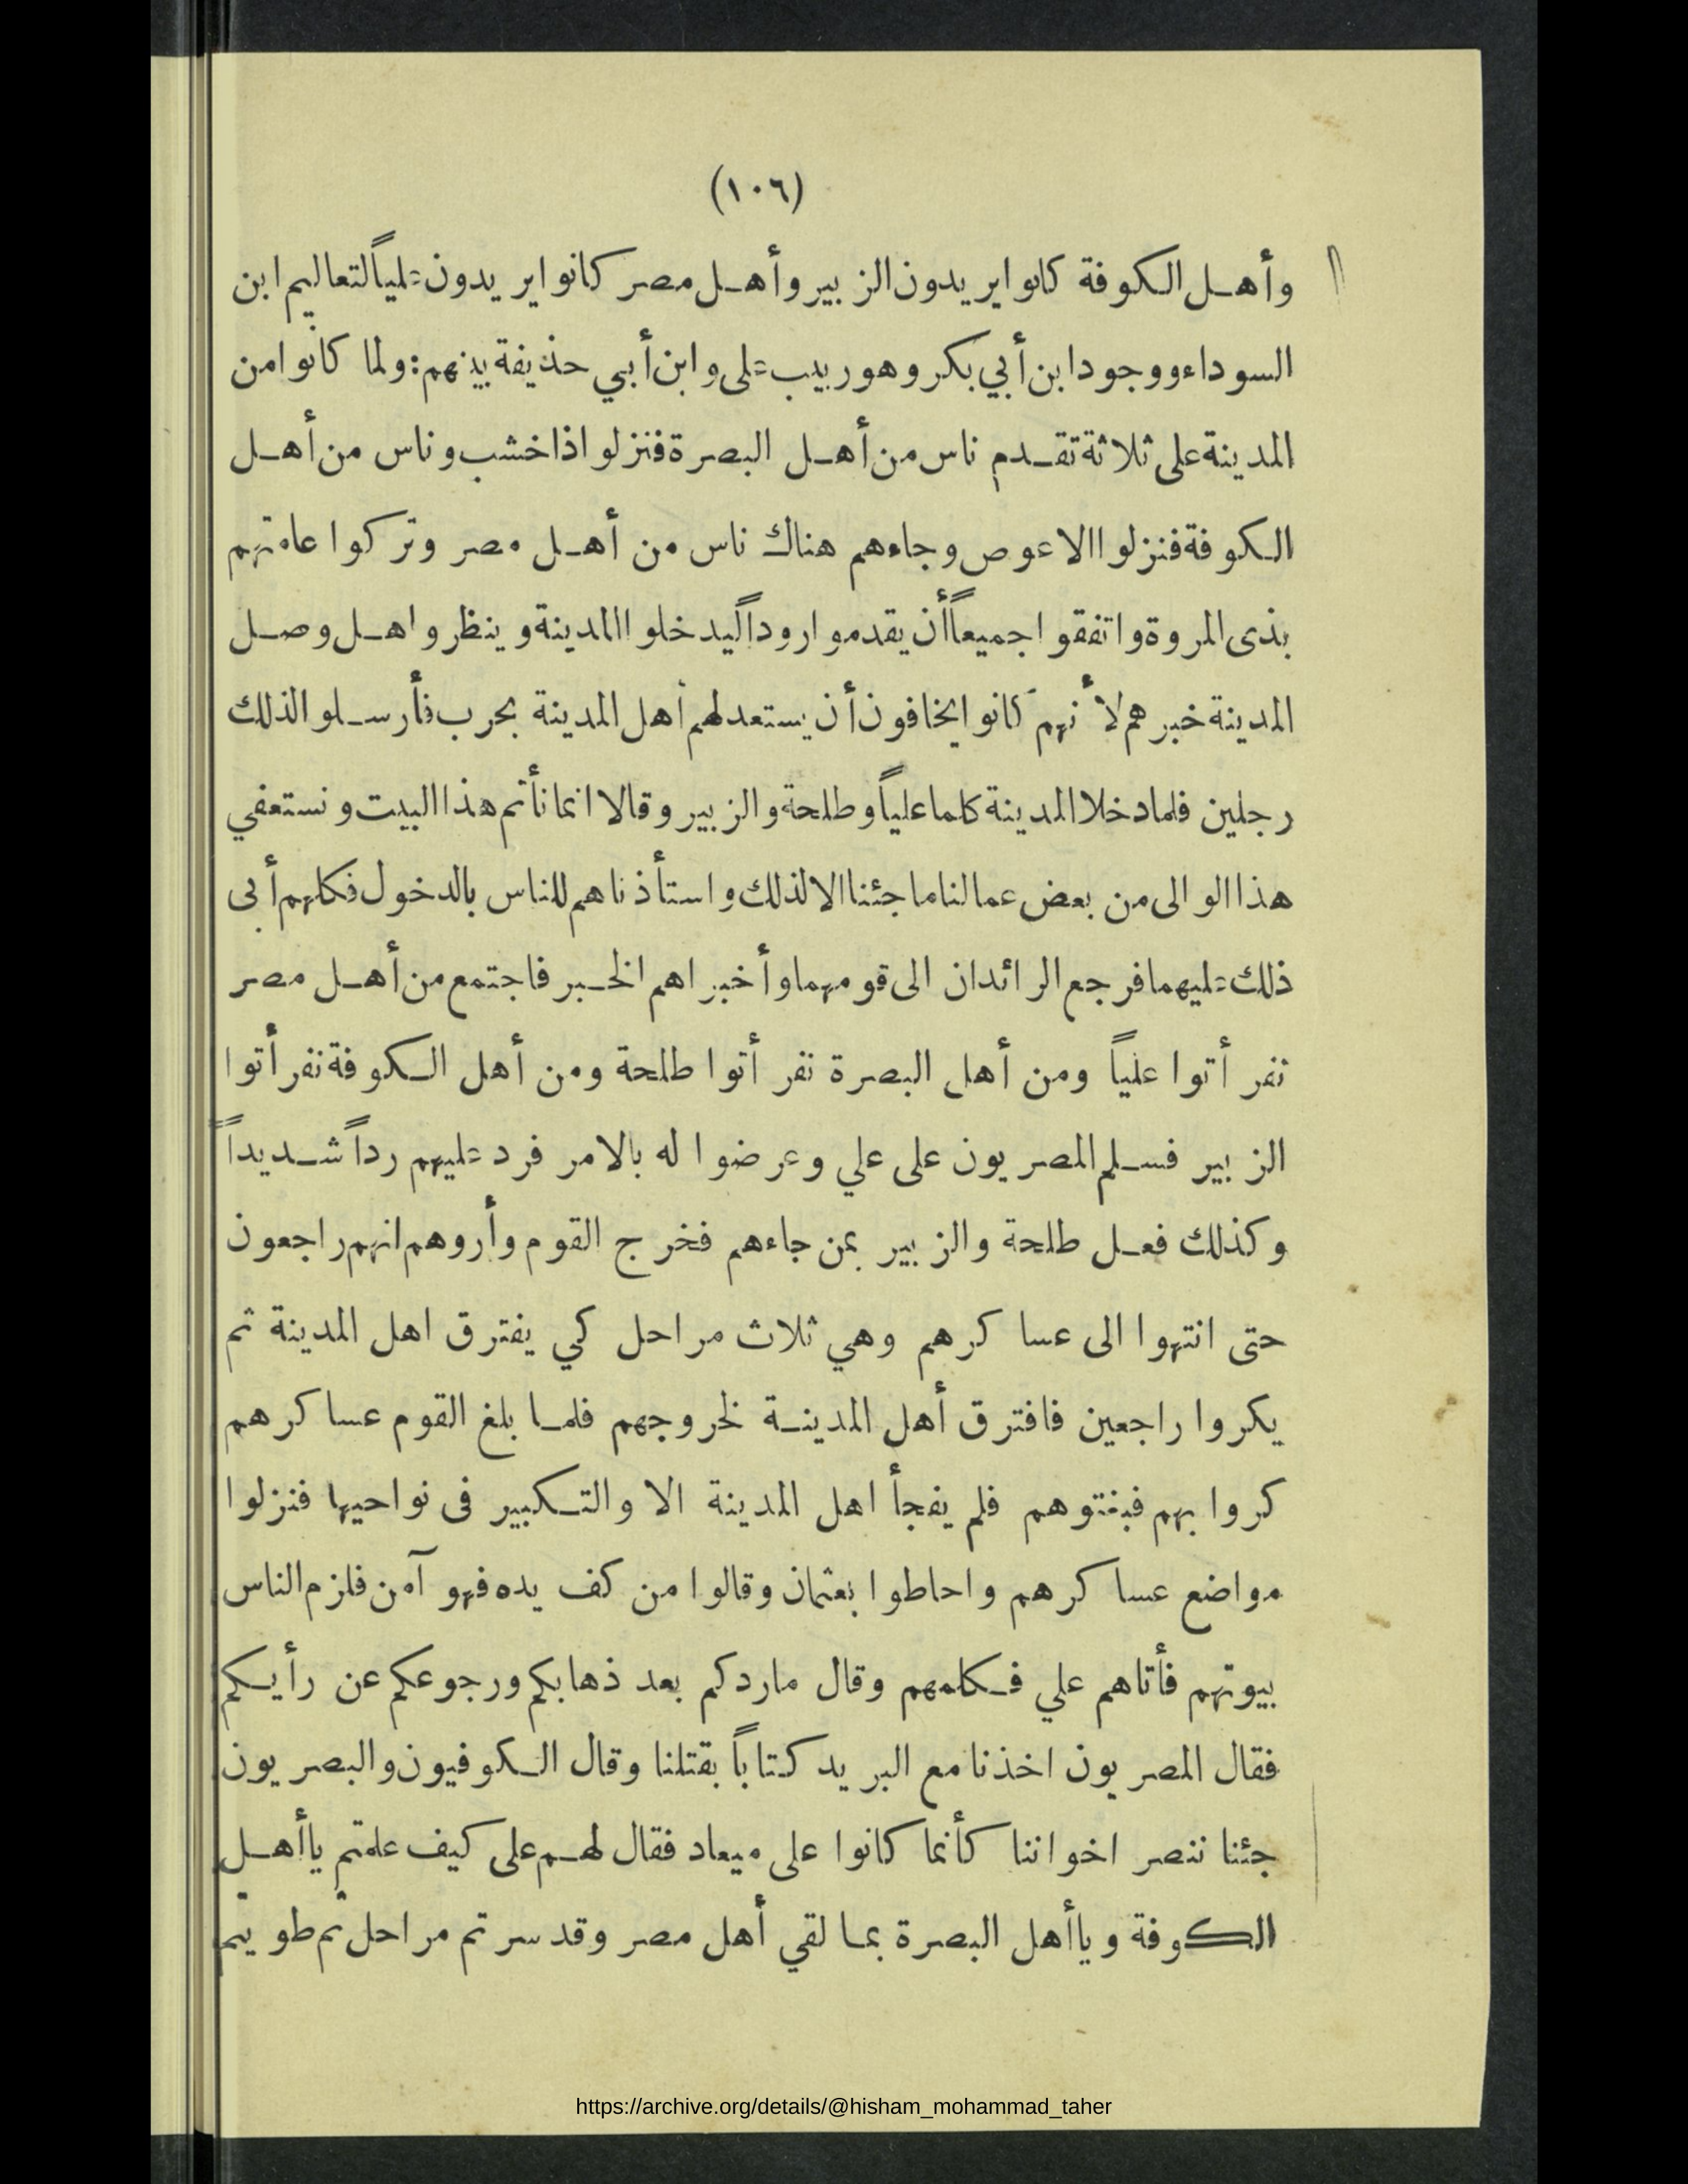 (١٠٦)
وأهل الكوفة كانوا يريدون الزبير وأهل مصر كانوا يريدون علياً لتعاليم ابن
السوداء ووجود ابن أبي بكر وهو ربيب على وابن أبي حذيفة بينهم: ولما كانوا من
المدينة على ثلاثة تقدم ناس من أهل البصرة فنزلوا ذا خشب وناس من أهل
الكوفة فنزلوا الاعوص وجاءهم هناك ناس من أهل مصر وتركوا عامتهم
بذى المروة واتفقوا جميعاً أن يقدموا روداً ليدخلوا المدينة وينظروا هل وصل
المدينة خبرهم لأنهم كانوا يخافون أن يستعد لهم أهل المدينة بحرب فأرسلوا لذلك
رجلين فلما دخلا المدينة كلما علياً وطلحة والزبير وقالا انما نأتم هذا البيت ونستعفي
هذا الوالى من بعض عمالنا ما جئنا الا لذلك واستأذناهم للناس بالدخول فكلهم أبى
ذلك عليهما فرجع الرائدان الى قومهما وأخبراهم الخبر فاجتمع من أهل مصر
نفر أتوا علياً ومن أهل البصرة نفر أتوا طلحة ومن أهل الكوفة نفر أتوا
الزبير فسلم المصريون على علي وعرضوا له بالامر فرد عليهم رداً شديداً
وكذلك فعل طلحة والزبير بمن جاءهم فخرج القوم وأروهم انهم راجعون
حتى انتهوا الى عساكرهم وهي ثلاث مراحل كي يفترق اهل المدينة ثم
يكروا راجعين فافترق أهل المدينة لخروجهم فلما بلغ القوم عساكرهم
كروا بهم فبغتوهم فلم يفجأ اهل المدينة الا والتكبير فى نواحيها فنزلوا
مواضع عساكرهم واحاطوا بعثمان وقالوا من كف يده فهو آمن فلزم الناس
بيوتهم فأتاهم علي فكلمهم وقال ماردكم بعد ذهابكم ورجوعكم عن رأيكم
فقال المصريون اخذنا مع البريد كتاباً بقتلنا وقال الكوفيون والبصريون
جئنا ننصر اخواننا كأنما كانوا على ميعاد فقال لهم على كيف علمتم ياأهل
الكوفة وياأهل البصرة بما لقي أهل مصر وقد سرتم مراحل ثم طويتم
https://archive.org/details/@hisham_mohammad_taher